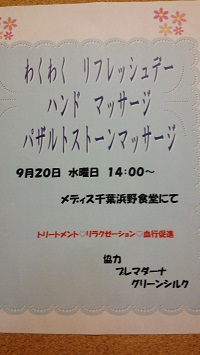 わくわく リフレッシュデー
ハンド マッサージ
バザルトストーンマッサージ
9月20日 水曜日 14:00～
メディス千葉浜野食堂にて
トリートメント♡リラクゼーション♡血行促進
協力
プレマダーナ
グリーンシルク